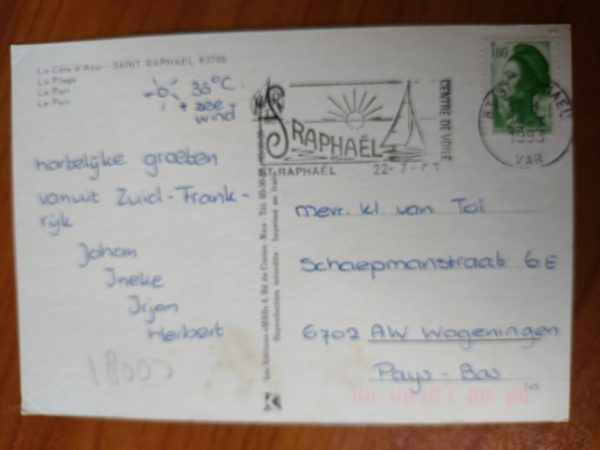 La Côte d'Azur - SAINT RAPHAËL 83700
La Plage
Le Port
Le Port
35°C
+ zee-
wind
hartelijke groeten
vanuit Zuid-Frank-
rijk
Johan
Ineke
Irjen
Herbert
18000
Reproduction interdite Imprimé en Italie
K
1,60
ST RAPHAËL
ST-RAPHAËL 22-7-
CENTRE DE VOILE
1983
VAR
mevr. kl. van Tol
Schaepmanstraat 6E
6702 AW Wageningen
Pays-Bas